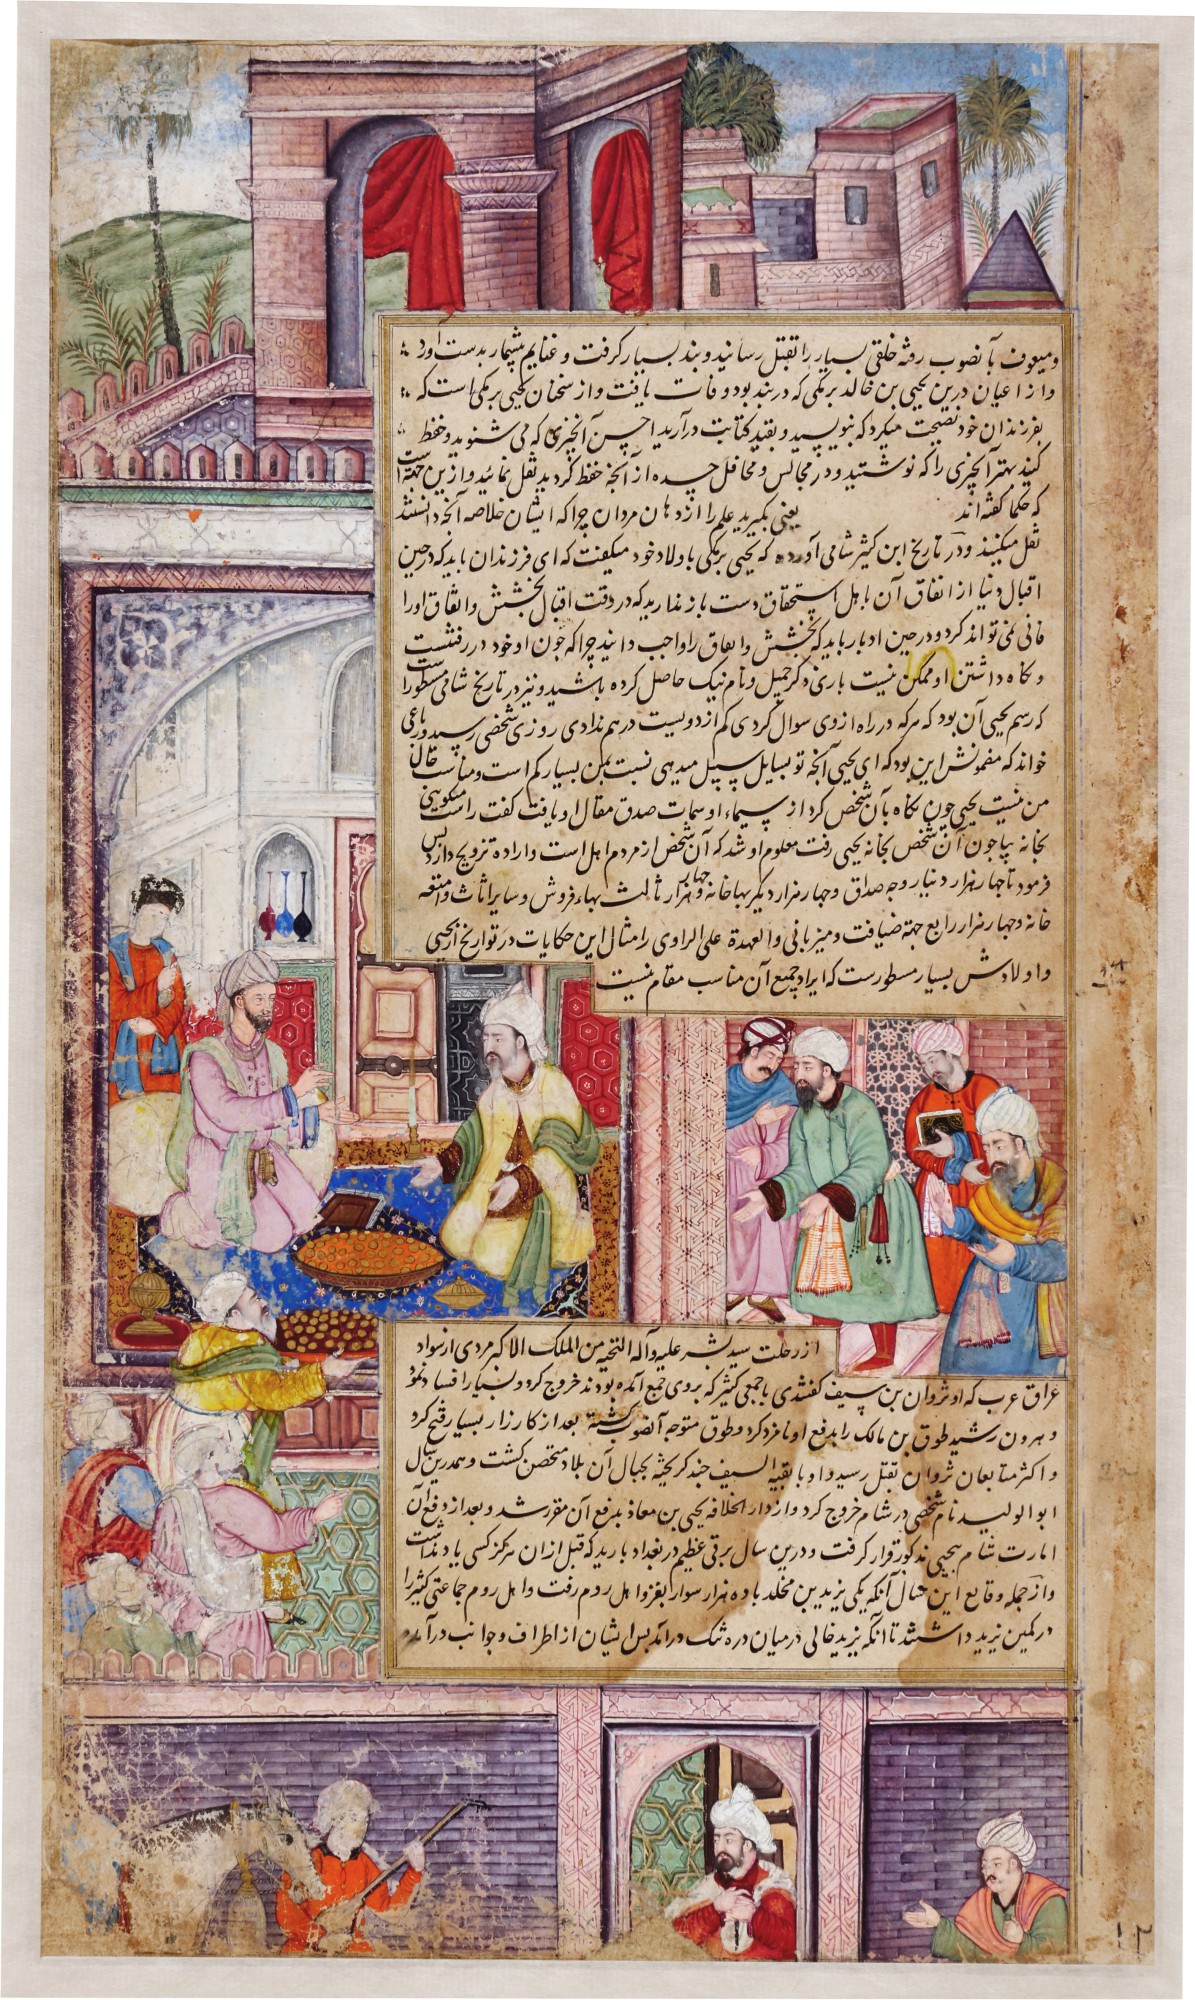 و میعوف بآنصوب رفته خلقی بسیار را بقتل رسانید و بند بسیار گرفت و غنایم بیشمار بدست آورد
و از اعیان درین یحیی بن خالد برمکی که در بند بود وفات یافت و از سخنان یحیی برمکی است که
بفرزندان خود نصیحت میکرد که بنویسید و بقید کتابت درآرید احسن آنچیزی که می شنوید و حفظ
کنید بهتر آنچیزی را که نوشتید و در مجالس و محافل چیده از آنچه حفظ کردید نقل نمائید و ازین جهة است
که حکما گفته اند یعنی بگیرید علم را از دهان مردان چرا که ایشان خلاصه آنچه دانستند
نقل میکنند و در تاریخ ابن کثیر شامی آورده که یحیی برمکی با ولاد خود میگفت که ای فرزندان باید که در حین
اقبال دنیا از انفاق آن باهل استحقاق دست باز ندارید که در وقت اقبال بخشش و انفاق او را
فانی نمی تواند کرد و در حین ادبار باید که بخشش و انفاق را واجب دانید چرا که چون او خود در رفتنست
و نگاه داشتن او ممکن نیست باری ذکر جمیل و نام نیک حاصل کرده باشید و نیز در تاریخ شامی مسطور است
که رسم یحیی آن بود که هرکه در راه از وی سوال کردی کم از دویست درهم ندادی روزی شخصی رسید و رباعی
خواند که مضمونش این بود که ای یحیی آنچه تو بسایل سبیل میدهی نسبت بمن بسیار کم است و مناسب حال
من نیست یحیی چون نگاه بآن شخص کرد از سیماء او سمات صدق مقال او یافت گفت راست میگویی
بخانه بیا چون آن شخص بخانه یحیی رفت معلوم او شد که آن شخص از مردم اهل است و اراده تزویج دارد پس
فرمود تا چهار هزار دینار وجه صداق و چهار هزار دیگر بهاء خانه و چهار هزار ثالث بهاء فروش و سایر اثاث و امتعه
خانه و چهار هزار رابع جهة ضیافت و میزبانی والعهدة علی الراوی و امثال این حکایات در تواریخ از یحیی
و اولادش بسیار مسطورست که ایراد جمیع آن مناسب مقام نیست
از رحلت سید بشر علیه و آله التحیة من الملک الاکبر مردی از سواد
عراق عرب که او ثروان بن سیف گفتندی با جمعی کثیر که بروی جمع آمده بودند خروج کرد و بسیار افساد نمود
و هرون رشید طوق بن مالک را بدفع او نامزد کرد و طوق متوجه آنصوب گشته بعد از کارزار بسیار فتح کرد
و اکثر متابعان ثروان بقتل رسید و او با بقیة السیف چند گریخته بجبال آن بلاد متحصن گشت و همدرین سال
ابوالولید نام شخصی در شام خروج کرد و از دار الخلافه یحیی بن معاذ بدفع آن مقرر شد و بعد از دفع آن
امارت شام بیحیی مذکور قرار گرفت و درین سال برفی عظیم در بغداد بارید که قبل ازان هرگز کسی یاد نداشت
و از جمله وقایع این سال آنکه یکی یزید بن مخلد با ده هزار سوار بغزو اهل روم رفت و اهل روم جماعتی کثیر را
در کمین یزید داشتند تا آنکه یزید خالی در میان دره تنگ درآمد پس ایشان از اطراف و جوانب درآمده